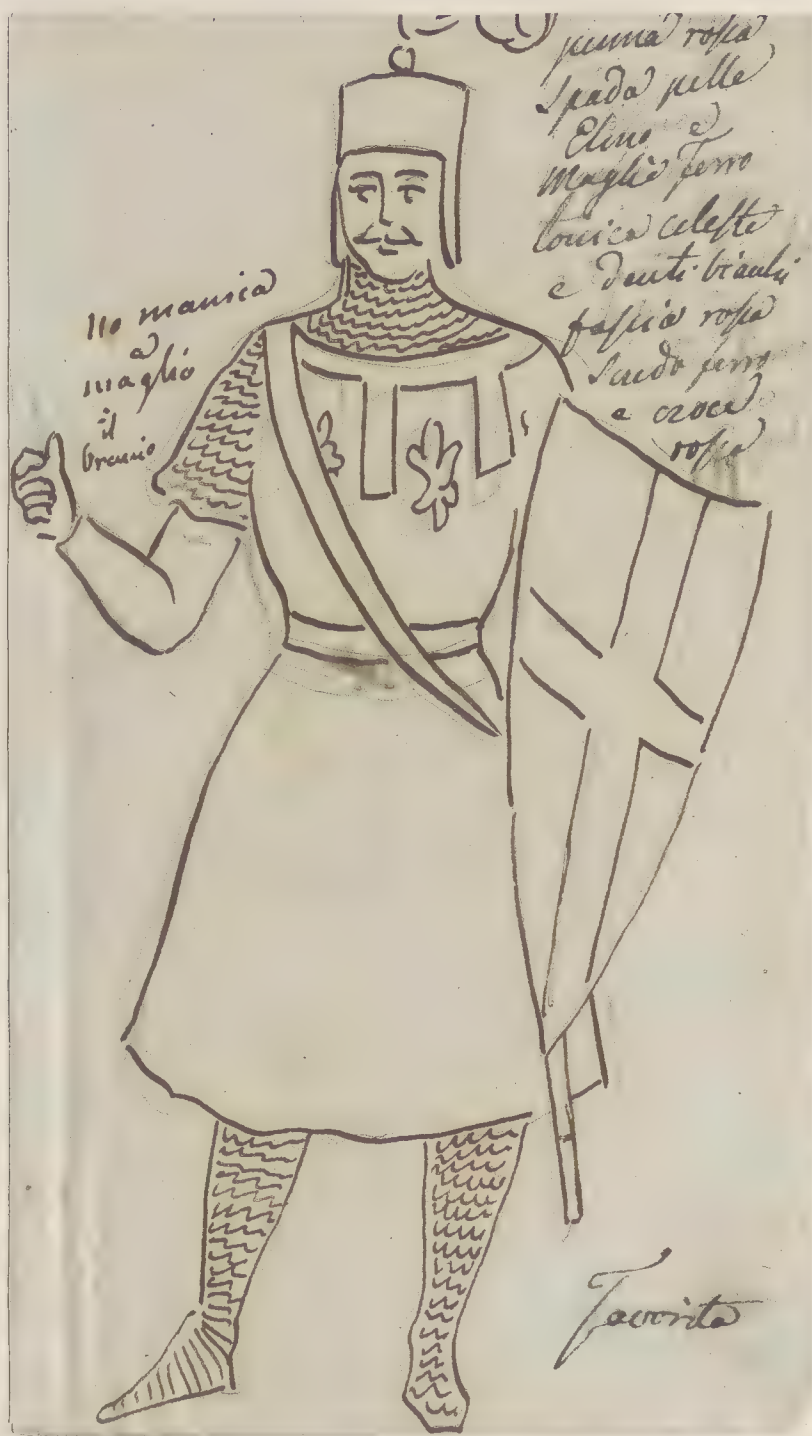 penna rossa
spada pelle
Elmo e
Maglie ferro
tonica celeste
e denti bianchi
fascia rossa
Scudo ferro
e croce
rossa
no manica
a
maglio
il
braccio
Favorita